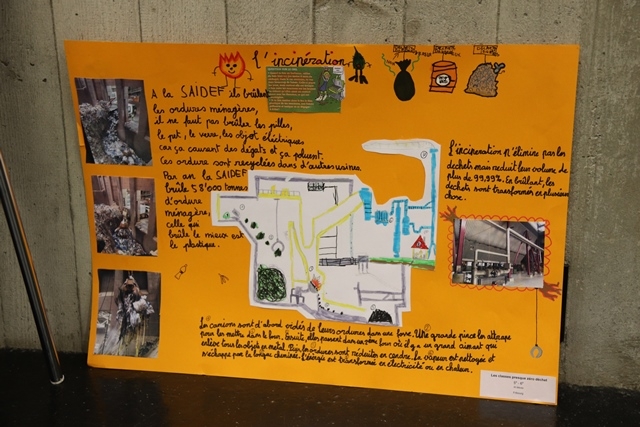 L'incinération
A la SAIDEF ils brûlent
les ordures ménagères,
il ne faut pas brûler les piles,
le pet, le verre, les objet éléctriques
car ça causent des dégats et ça poluent.
Ces ordure sont recyclées dans d'autres usines.
Par an la SAIDEF
brûle 58'000 tonnes
d'ordure
ménagère,
celle qui
brûle le mieux est
le plastique.
L'incineration n'élimine pas les
dechets mais reduit leur volume de
plus de 99,99%. En brûlant, les
dechets sont transformés en plusieurs
chose.
Les camions sont d'abord vidés de leurs ordures dans une fosse. Une grande pince les attrape
pour les mettre dans le four. Ensuite, elles passent dans un 2ème four où il y a un grand aimant qui
enlève tous les objets en métal. Puis les ordures sont réduites en cendre. La vapeur est nettoyée et
s'échappe par la longue cheminée. L'énergie est transformée en éléctricité ou en chaleur.
Les classes presque zéro déchet